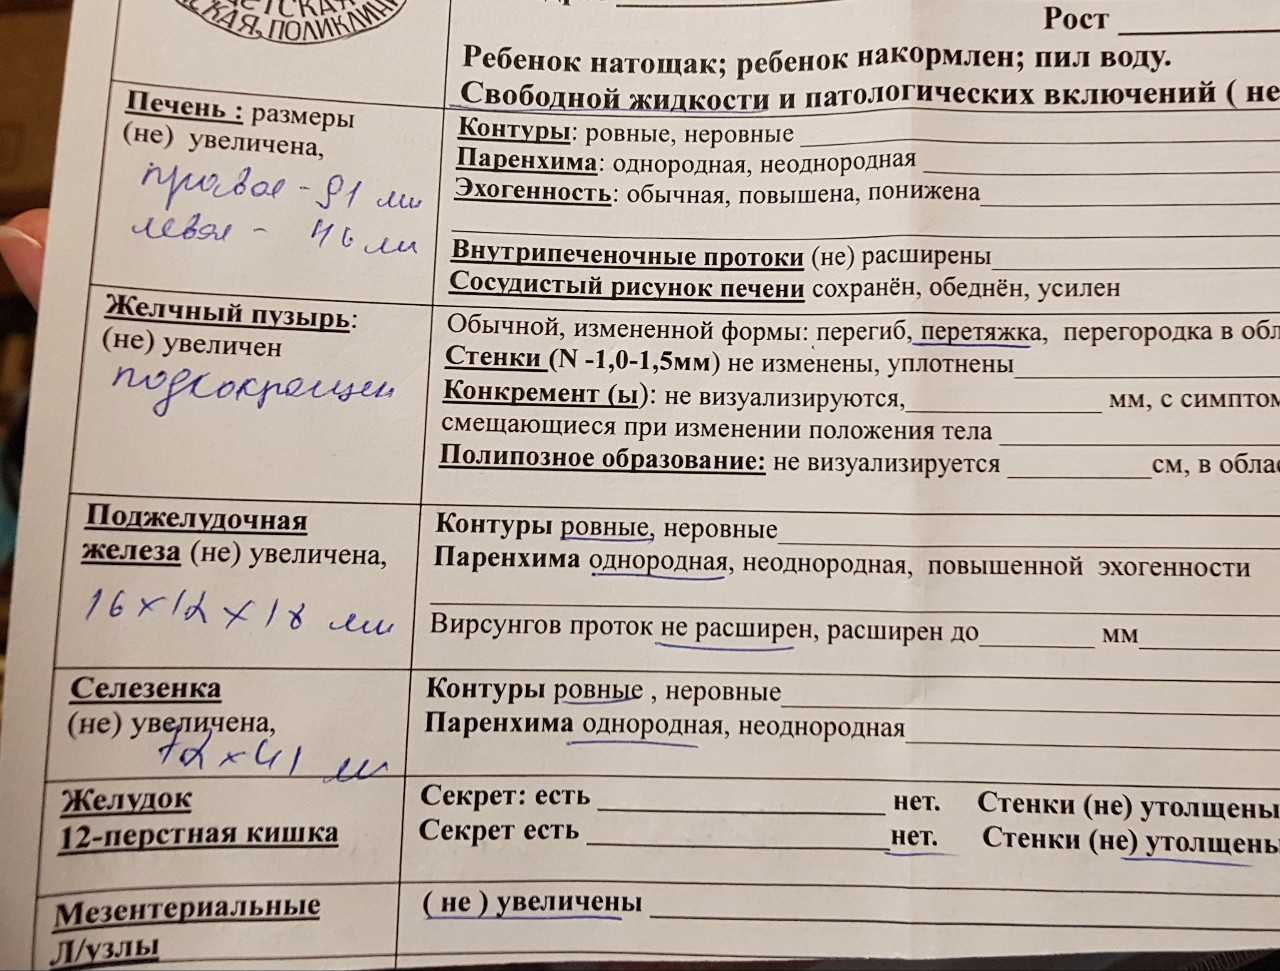 ДЕТСКАЯ
СКАЯ ПОЛИКЛИНИ
Рост
Ребенок натощак; ребенок накормлен; пил воду.
Свободной жидкости и патологических включений ( не
Печень : размеры
(не) увеличена,
правая - 91 мм
левая - 46 мм
Контуры: ровные, неровные
Паренхима: однородная, неоднородная
Эхогенность: обычная, повышена, понижена
Внутрипеченочные протоки (не) расширены
Сосудистый рисунок печени сохранён, обеднён, усилен
Желчный пузырь:
(не) увеличен
подсокращен
Обычной, измененной формы: перегиб, перетяжка, перегородка в обл
Стенки (N -1,0-1,5мм) не изменены, уплотнены
Конкремент (ы): не визуализируются, мм, с симптом
смещающиеся при изменении положения тела
Полипозное образование: не визуализируется см, в облас
Поджелудочная
железа (не) увеличена,
16 x 12 x 18 мм
Контуры ровные, неровные
Паренхима однородная, неоднородная, повышенной эхогенности
Вирсунгов проток не расширен, расширен до мм
Селезенка
(не) увеличена,
72 x 41 мм
Контуры ровные , неровные
Паренхима однородная, неоднородная
Желудок
12-перстная кишка
Секрет: есть нет. Стенки (не) утолщены
Секрет есть нет. Стенки (не) утолщены
Мезентериальные
Л/узлы
( не ) увеличены